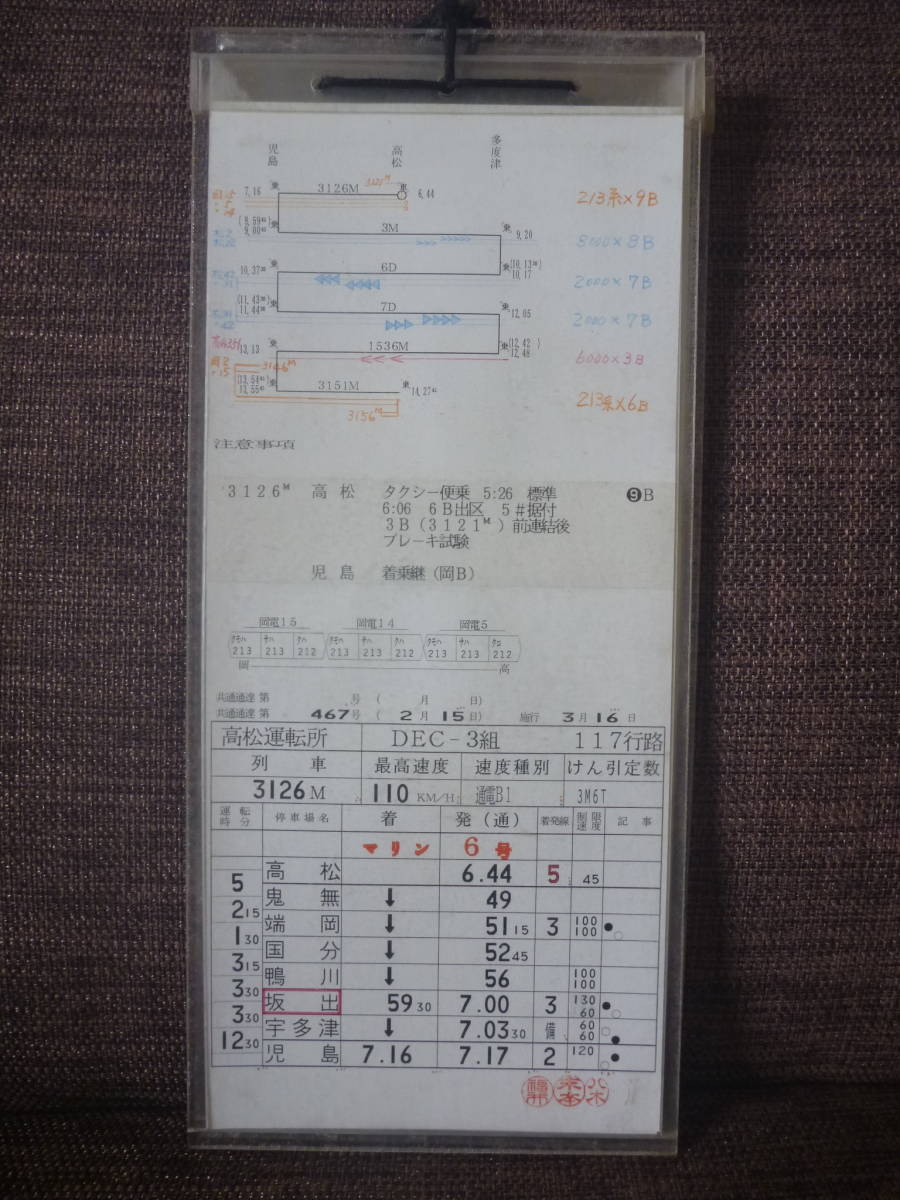 児島 高松 多度津
7.16 東 3126M 3121M 東 6.44 213系×9B
(8.59⁴⁵) 9.00⁴⁵ 東 3M 東 9.20 8000×8B
10.37³⁰ 東 6D 東 (10.13³⁰) 10.17 2000×7B
(11.43³⁰) 11.44³⁰ 東 7D 東 12.05 2000×7B
13.13 東 1536M 東 (12.42) 12.48 6000×3B
(13.54⁴⁵) 13.55⁴⁵ 東 3151M 東 14.27⁴⁵ 213系×6B
3156M
注意事項
3126M 高松 タクシー便乗 5:26 標準 ❾B
6:06 6B出区 5#据付
3B(3121M)前連結後
ブレーキ試験
児島 着乗継(岡B)
岡電15 岡電14 岡電5
クモハ サハ クハ クモハ サハ クハ クモハ サハ クロ
213 213 212 213 213 212 213 213 212
岡 高
共通通達 第 号 ( 月 日)
共通通達 第 467号 ( 2月15日) 施行 3月16日
高松運転所 DEC-3組 117行路
列車 最高速度 速度種別 けん引定数
3126M 110 KM/H 通電B1 3M6T
運転時分 停車場名 着 発(通) 着発線 制限速度 記事
マリン 6号
高松 6.44 5 45
5
鬼無 ↓ 49
2 15
端岡 ↓ 51 15 3 100 100
1 30
国分 ↓ 52 45
3 15
鴨川 ↓ 56 100 100
3 30
坂出 59 30 7.00 3 130 60
3 30
宇多津 ↓ 7.03 30 備 60 60
12 30
児島 7.16 7.17 2 120
八木